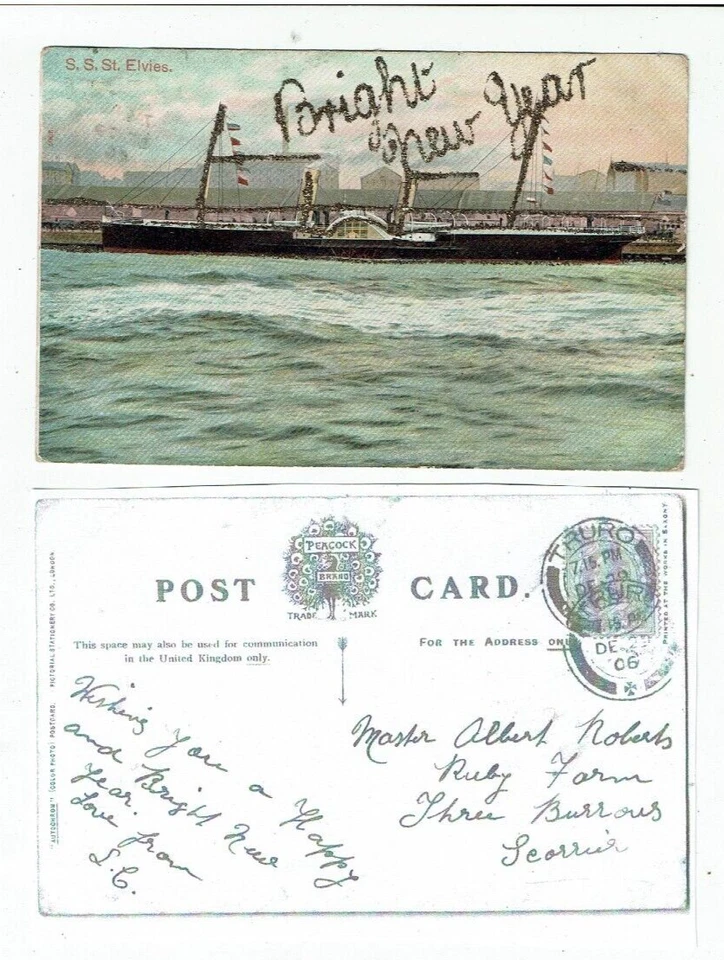 S. S. St. Elvies.
Bright
New Year
POST CARD.
PEACOCK
BRAND
TRADE MARK
TRURO
7.15. PM
DE 29
TRUR
7.15. PM
DE 2
06
This space may also be used for communication
in the United Kingdom only.
FOR THE ADDRESS ON
PRINTED AT THE WORKS IN SAXONY
"AUTOCHROM" (COLOUR PHOTO) POSTCARD. PICTORIAL STATIONERY CO. LTD., LONDON
Wishing you a Happy
and Bright New
Year.
Love from
S.C.
Master Albert Roberts
Ruby Farm
Three Burrows
Scorrier